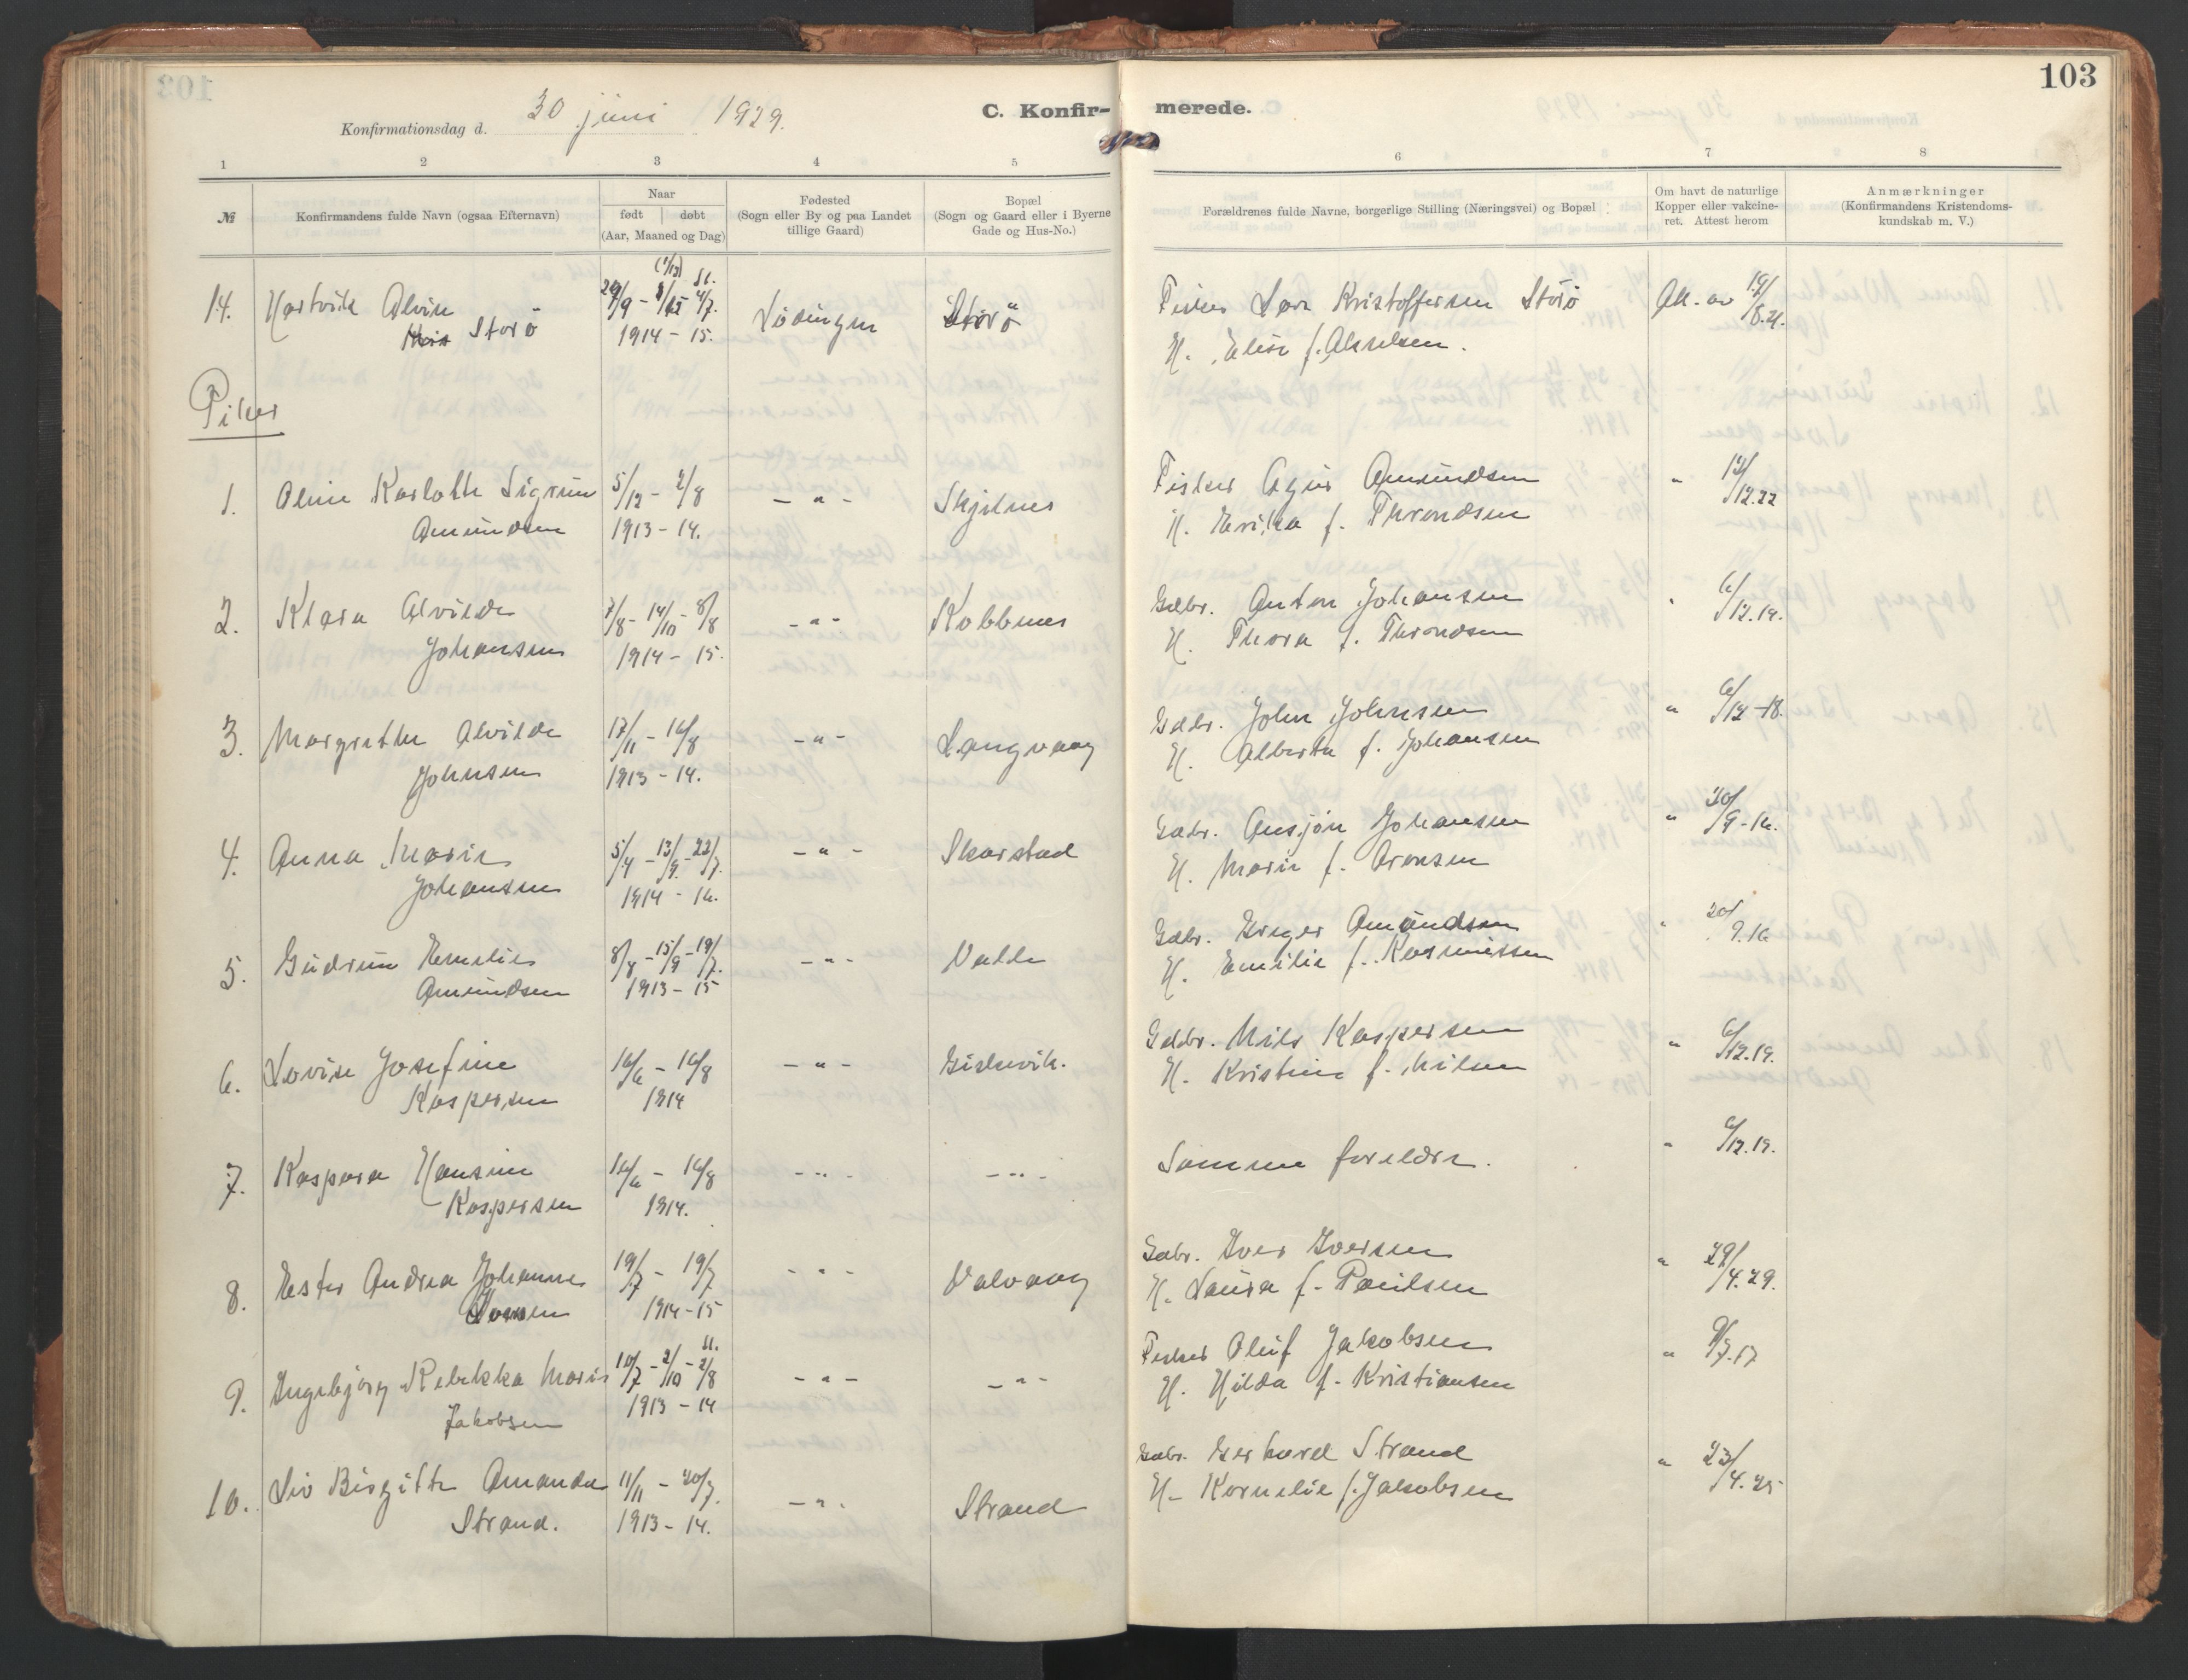 103
Konfirmationsdag d. 30 juni 1929.
C. Konfir-
merede.
1 2 3 4 5 6 7 8
№
Konfirmandens fulde Navn (ogsaa Efternavn)
Naar
født | døbt
(Aar, Maaned og Dag)
Fødested
(Sogn eller By og paa Landet
tillige Gaard)
Bopæl
(Sogn og Gaard eller i Byerne
Gade og Hus-No.)
Forældrenes fulde Navne, borgerlige Stilling (Næringsvei) og Bopæl
Om havt de naturlige
Kopper eller vakcine-
ret. Attest herom
Anmærkninger
(Konfirmandens Kristendoms-
kundskab m. V.)
14. Hartvik Alvin Lödingen Storö Fisker Kristoffersen Storö
Storö 1914 - 15. H. Elise f. Akselsen.
Piker
1. Karlotte Sigrun 5/12 - 2/8 - " - Skjelnes Fisker Amundsen " 12.22
Amundsen 1913 - 14. H. Erika f. Throndsen
2. Klara Alvilde 7/8 - 14/10 - 8/8 - " - Kobbnes Gdbr. Anton Johansen " 6/12.19.
Johansen 1914 - 15. H. Thora f. Throndsen
3. Margrethe Alvilde 17/11 - 16/8 - " - Langvaag Gdbr. John Johnsen " 6/12-18.
Johnsen 1913 - 14. H. Alberta f. Johansen
4. Anna Marie 5/4 - 13/9 - 22/7. - " - Skarstad Gdbr. Ansjön Johansen " 30/9-16.
Johansen 1914 - 16. H. Marie f. Aronsen
5. Gudrun Emelie 8/8 - 15/9 - 19/7. - " - Valle Gdbr. Amundsen " 30/9.16
Amundsen 1913 - 15 H. Emilie f. Rasmussen
6. Lovise Josefine 16/6 - 16/8 - " - Giskevik. Gdbr. Nils Kaspersen " 6/12.19.
Kaspersen 1914 H. Kristine f. Nilsen
7. Kaspara Hansine 16/6 - 16/8 - " - - " - Samme foreldre. " 6/12.19.
Kaspersen 1914.
8. Ester Andrea Johanne 19/7 - 19/7 - " - Valvaag Gdbr. Iver Iversen " 29/4.29.
Iversen 1914-15 H. Laura f. Paulsen
9. Ingebjörg Rebekka Marie 10/7 - 2/10 - 2/8 - " - - " - Fisker Oluf Jakobsen "
Jakobsen 1913 - 14 H. Hilda f. Kristiansen
10. Liv Birgitte Amanda 11/11 - 20/7. - " - Strand Gdbr. Gerhard Strand " 23/4.25
Strand. 1913 - 14. H. Kornelie f. Jakobsen